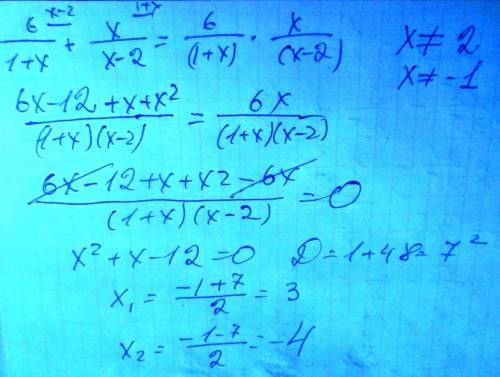 6 ^(x-2)/(1+x) + x ^(1+x)/(x-2) = 6/(1+x) · x/(x-2)   x ≠ 2
x ≠ -1
(6x-12+x+x²)/((1+x)(x-2)) = 6x/((1+x)(x-2))
(6x-12+x+x²-6x)/((1+x)(x-2)) = 0
x²+x-12=0   D=1+48=7²
x₁ = (-1+7)/2 = 3
x₂ = (-1-7)/2 = -4